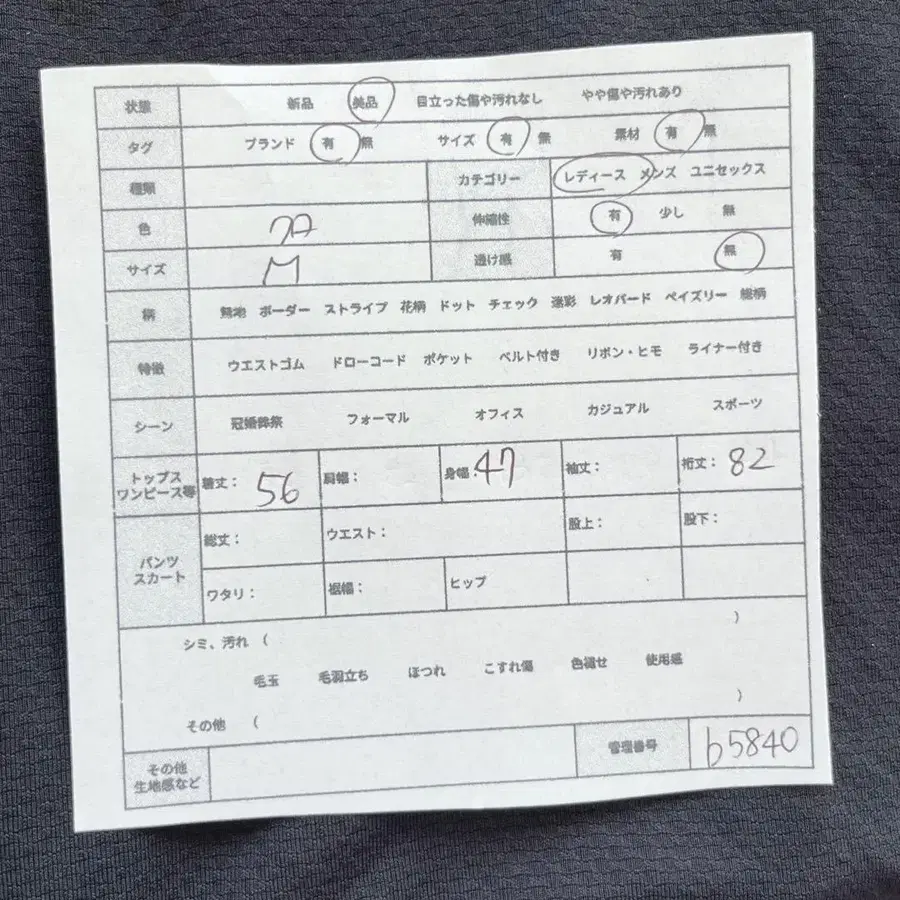 状態 新品 美品 目立った傷や汚れなし やや傷や汚れあり
タグ ブランド 有 無 サイズ 有 無 素材 有 無
種類 カテゴリー レディース メンズ ユニセックス
色 伸縮性 有 少し 無
サイズ M 透け感 有 無
柄 無地 ボーダー ストライプ 花柄 ドット チェック 迷彩 レオパード ペイズリー 総柄
特徴 ウエストゴム ドローコード ポケット ベルト付き リボン・ヒモ ライナー付き
シーン 冠婚葬祭 フォーマル オフィス カジュアル スポーツ
トップス
ワンピース等 着丈: 56 肩幅: 身幅: 47 袖丈: 裄丈: 82
パンツ
スカート 総丈: ウエスト: 股上: 股下:
ワタリ: 裾幅: ヒップ
シミ、汚れ ( )
毛玉 毛羽立ち ほつれ こすれ傷 色褪せ 使用感
その他 ( )
その他
生地感など 管理番号 b5840